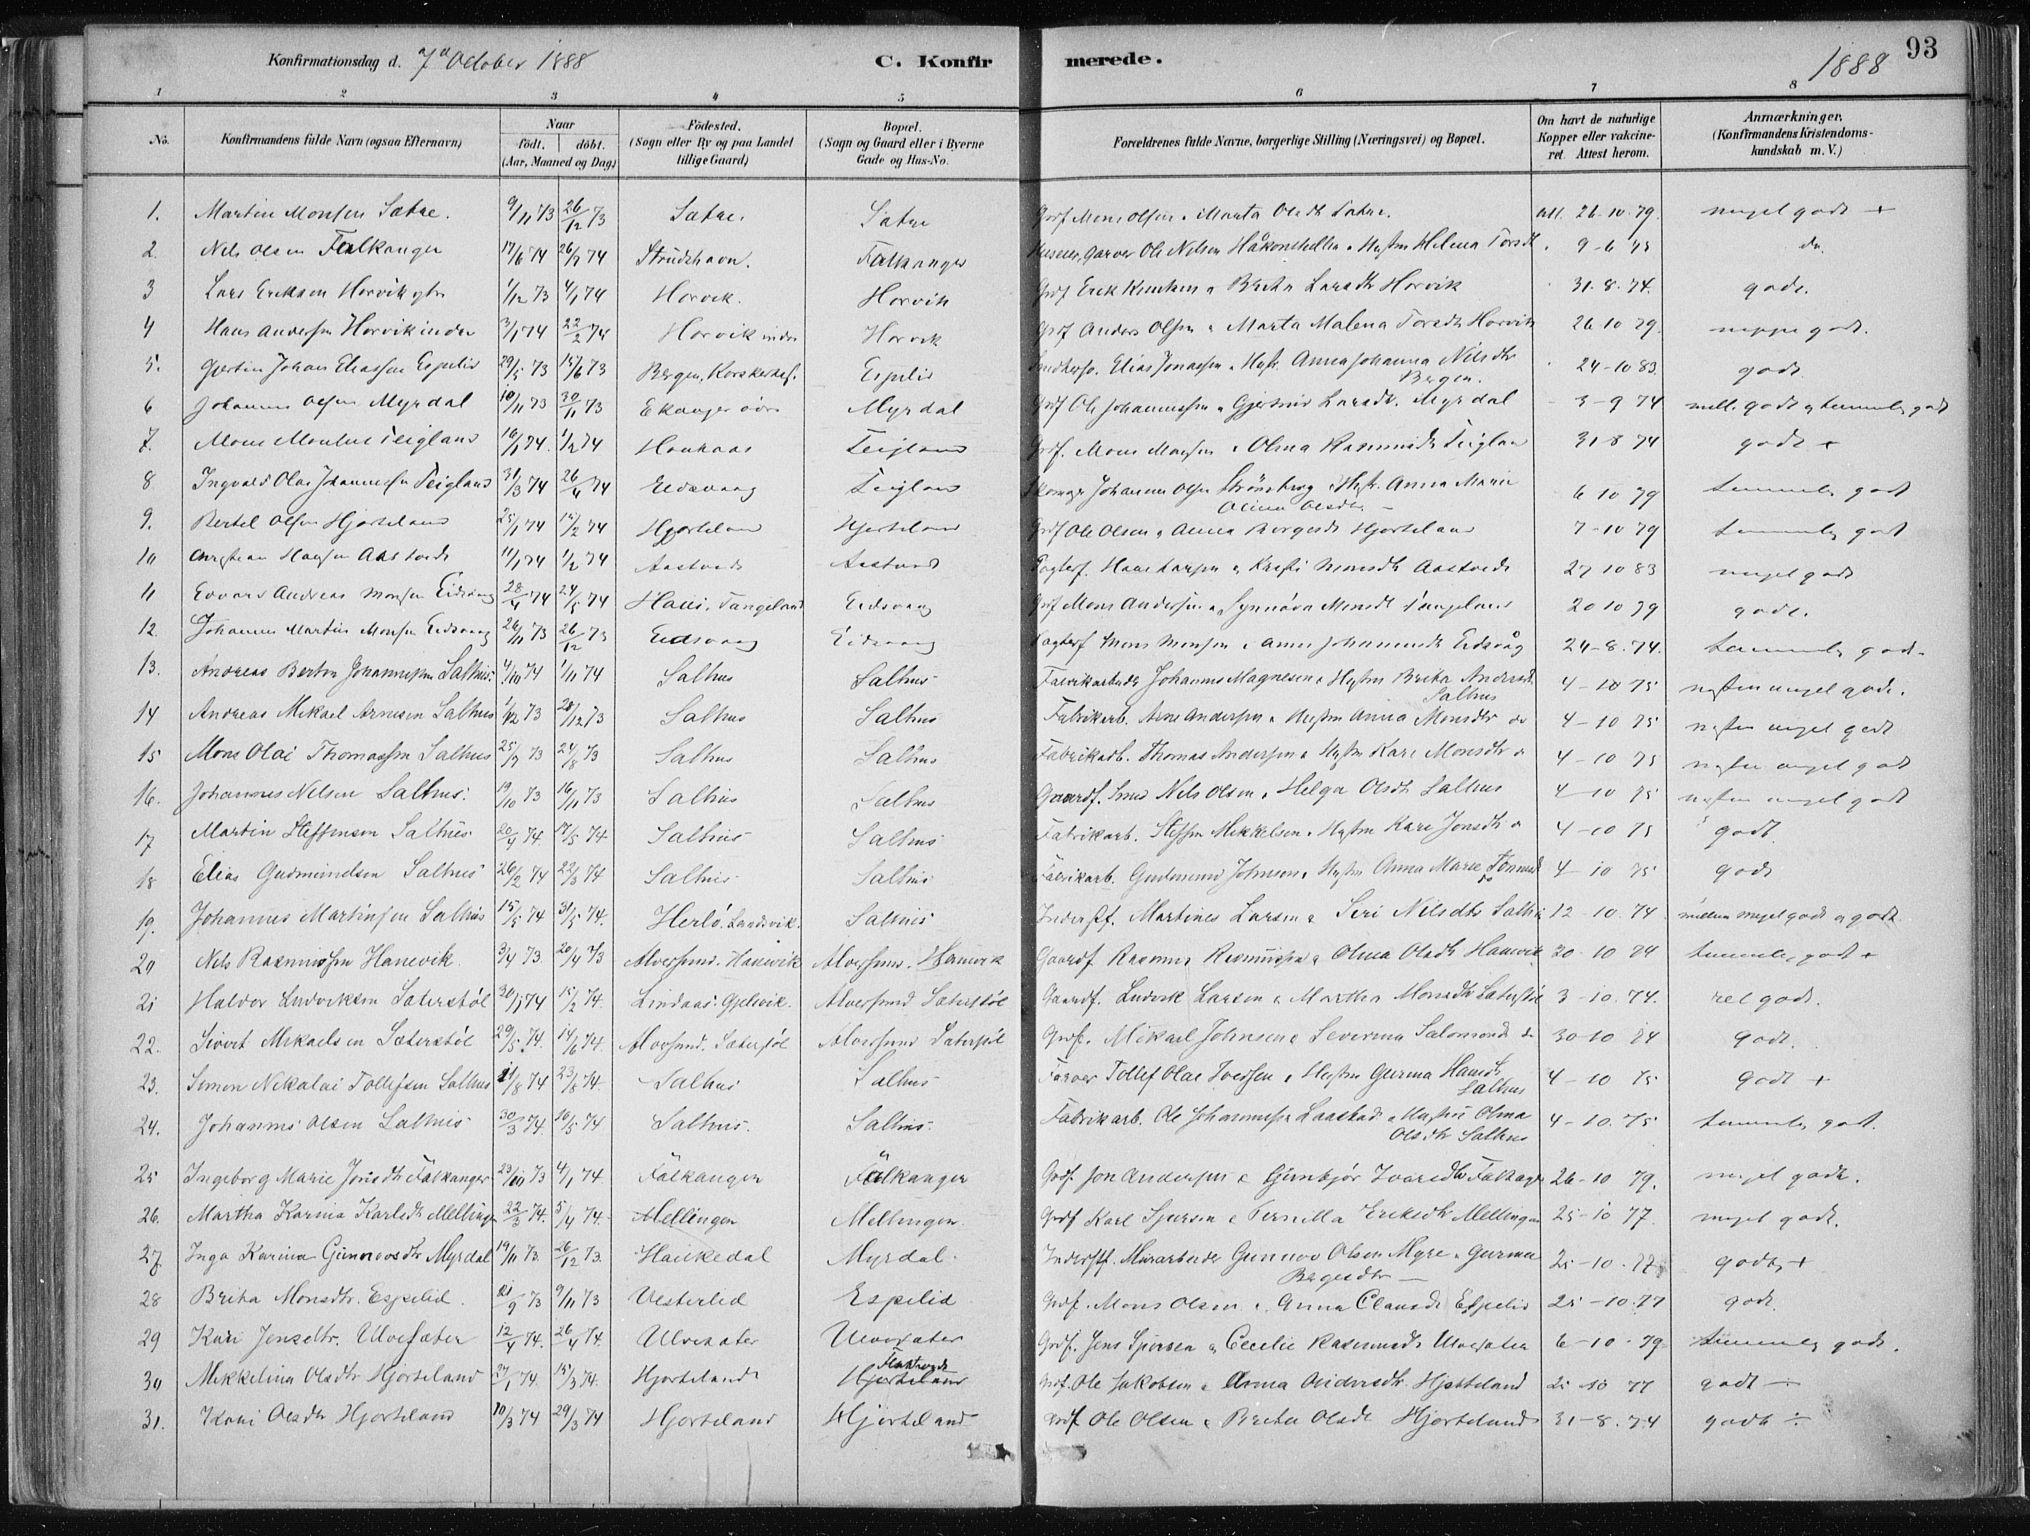 Konfirmationsdag d. 7d October 1888 C. Konfir merede. 1888 93
1 2 3 4 5 6 7 8
No. Konfirmandens fulde Navn (ogsaa Efternavn) Naar födt. döbt. (Aar, Maaned og Dag) Födested. (Sogn eller By og paa Landet tillige Gaard) Bopæl. (Sogn og Gaard eller i Byerne Gade og Hus-No. Forældrenes fulde Navne, borgerlige Stilling (Næringsvei) og Bopæl. Om havt de naturlige Kopper eller vakcineret. Attest herom. Anmærkninger. (Konfirmandens Kristendomskundskab m. V.)
1. Martin Monsen Sætre. 9/11 73 26/12 73 Sætre Sætre Grdf Mons Olsen Marta Olsdtr Sætre. att. 26-10-79. meget godt +
2. Nils Olsen Falkanger 17/6 74 26/7 74 Strudshavn. Falkanger Garver Ole Nilsen Håkonshella Hustru Helena do
3 Lars Eriksen Horvik ytre 1/12 73 4/1 74 Horvik. Horvik Grdf Erik Knutsen Brita Larsdtr Horvik 31-8-74. godt.
4 Hans Andersen Horvik indre 3/1 74 22/2 74 Horvik indre Horvik Grdf Anders Olsen Marta Malena Horvik 26 10 79. neppe godt.
5. Johan Eliassen Espelid 29/5 73 15/6 73 Bergen, Korskirkes. Espelid Elias Jonassen Hustr. Anna Johanna Nilsdtr Bergen. 24-10 83. godt.
6 Johannes Olsen Myrdal 10/11 73 30/11 73 Ekanger övre Myrdal Grdf Ole Johannessen Larsdtr. Myrdal 3-9 74 mell. godt og temmelig godt
7. Mons Monsen Teigland 16/1 74. 1/2 74 Haukaas Teigland Grdf. Mons Monsen Olina Rasmusdtr Teigland 31-8 74 godt +
8 Ingvald Olai Johannessen Teigland 31/3 74 26/4 74 Eidsvaag Teigland Johannes Olsen Strömberg Hustr. Anna Marie Olina Olsdtr 6 10 79 temmelig godt
9. Bertel Olsen Hjorteland 25/1 74 15/2 74 Hjorteland Hjorteland Grdf Ole Olsen Anna Hjorteland 7-10 79 temmelig godt
10 Christian Hansen Aastvedt 11/1 74 1/2 74 Aastvedt Aastvedt Hans Larsen Monsdtr Aastvedt 27 10 83 meget godt
11 Edvard Andreas Monsen Eidsvaag 28/4 74 24/5 74 Haus, Tangeland Eidsvaag Grdf Mons Andersen Synnöva Monsdtr Tangeland 20 10 79 godt.
12. Johannes Martin Monsen Eidsvaag 26/11 73 26/12 73 Eidsvaag Eidsvaag Mons Monsen Anna Johannesdtr Eidsvåg 24-8-74. temmelig godt.
13. Andreas Berton Johannessen Salhus. 4/10 74 1/11 74 Salhus Salhus Fabrikarbeider Johannes Magnesen Hustru Brita Andersdtr Salhus 4-10 75 næsten meget godt.
14 Andreas Mikael Arnesen Salhus 1/12 73 28/12 73 Salhus Salhus Fabrikarb. Arne Andersen Hustru Anna Monsdtr do 4-10 75 næsten meget godt
15 Mons Olai Thomassen Salhus 25/7 73 24/8 73 Salhus Salhus Fabrikarb. Thomas Andersen Hustru Kari Monsdtr do 4-10 75 næsten meget godt
16. Johannes Nilsen Salhus. 19/10 73 16/11 73 Salhus Salhus Gaardf. Nils Olsen Helga Olsdtr Salhus 4-10 75 næsten meget godt
17 Martin Steffensen Salhus 20/4 74. 17/5 74. Salhus Salhus Fabrikarb. Steffen Mikkelsen Hustru Kari Jonsdtr do 4-10 75 godt
18 Elias Gudmundsen Salhus 26/2 74 22/3 74 Salhus Salhus Fabrikarb. Gudmund Johnsen Hustru Anna Marie 4-10 75 godt
19. Johannes Martinsen Salhus 15/5 74 31/5 74. Herlö, Landsvik. Salhus Martines Larsen Siri Nilsdtr Salhus 12-10.74. mellem meget godt og godt.
20 Nils Rasmussen Hanevik. 3/4 73. 20/4 73 Alversund. Hanevik Alversund. Hanevik Gaardf. Rasmus Rasmussen Olina Olsdtr Hanevik 30-10 84 temmelig godt +
21 Haldor Ludviksen Sæterstöl 30/1 74 15/2 74. Lindaas, Gjelvik. Alversund Sæterstöl Gaardf. Ludvik Larsen Martha Monsdtr Sæterstöl 3-10.74. ret godt.
22. Sivert Mikaelsen Sæterstöl 29/5 74. 14/6 74. Alversund. Sæterstöl Alversund Sæterstöl Grdf. Mikael Johnsen Severina Salomonsdtr do 30-10 84 godt.
23. Simon Nikolai Tollefsen Salhus 21/8 74 23/8 74. Salhus Salhus Farver Tollef Olai Hustru Gurina Hansdtr Salhus 4-10 75 godt +
24. Johannes Olsen Salhus 30/3 74. 10/5 74 Salhus. Salhus. Fabrikarb. Ole Johannessen Hustru Olina Olsdtr Salhus 4-10.75 temmelig godt.
25 Ingeborg Marie Jonsdtr Falkanger 23/10 73 4/1 74. Falkanger Falkanger Grdf. Jon Andersen Gunbjör Iversdtr Falkanger 26-10 79. meget godt.
26. Martha Karina Karlsdtr Mellingen 22/3 74. 5/4 74. Mellingen Mellingen. Grdf Karl Sjursen Pernilla Eriksdtr Mellingen 25-10 77. meget godt.
27. Inga Karina Gunnarsdtr Myrdal 19/11 73. 26/12 73. Haukedal Myrdal. Murarbeider Gunnar Olsen Myre Gurina Bergesdtr 25-10.77 godt, +
28 Brita Monsdtr. Espelid. 21/9 73 9/11 73 Vesterlid Espelid Grdf. Mons Olsen Anna Clausdtr Espelid 25-10.77 godt.
29 Kari Jensdtr. Ulvesæter 12/4 74. 26/4 74. Ulvesæter Ulvesæter Grdf. Jens Sjursen Cecilie Rasmusdtr Ulvesæter 6-10-79 temmelig godt.
30 Mikkelina Olsdtr Hjorteland 27/1 74. 15/3 74. Hjorteland Hjorteland Grdf. Ole Jakobsen Anna Andersdtr. Hjorteland 25 10 77 godt ÷
31. Kari Olsdtr Hjorteland 10/3 74 29/3 74 Hjorteland Hjorteland Grdf Ole Olsen Brita Olsdtr Hjorteland 31-8.74 godt ÷